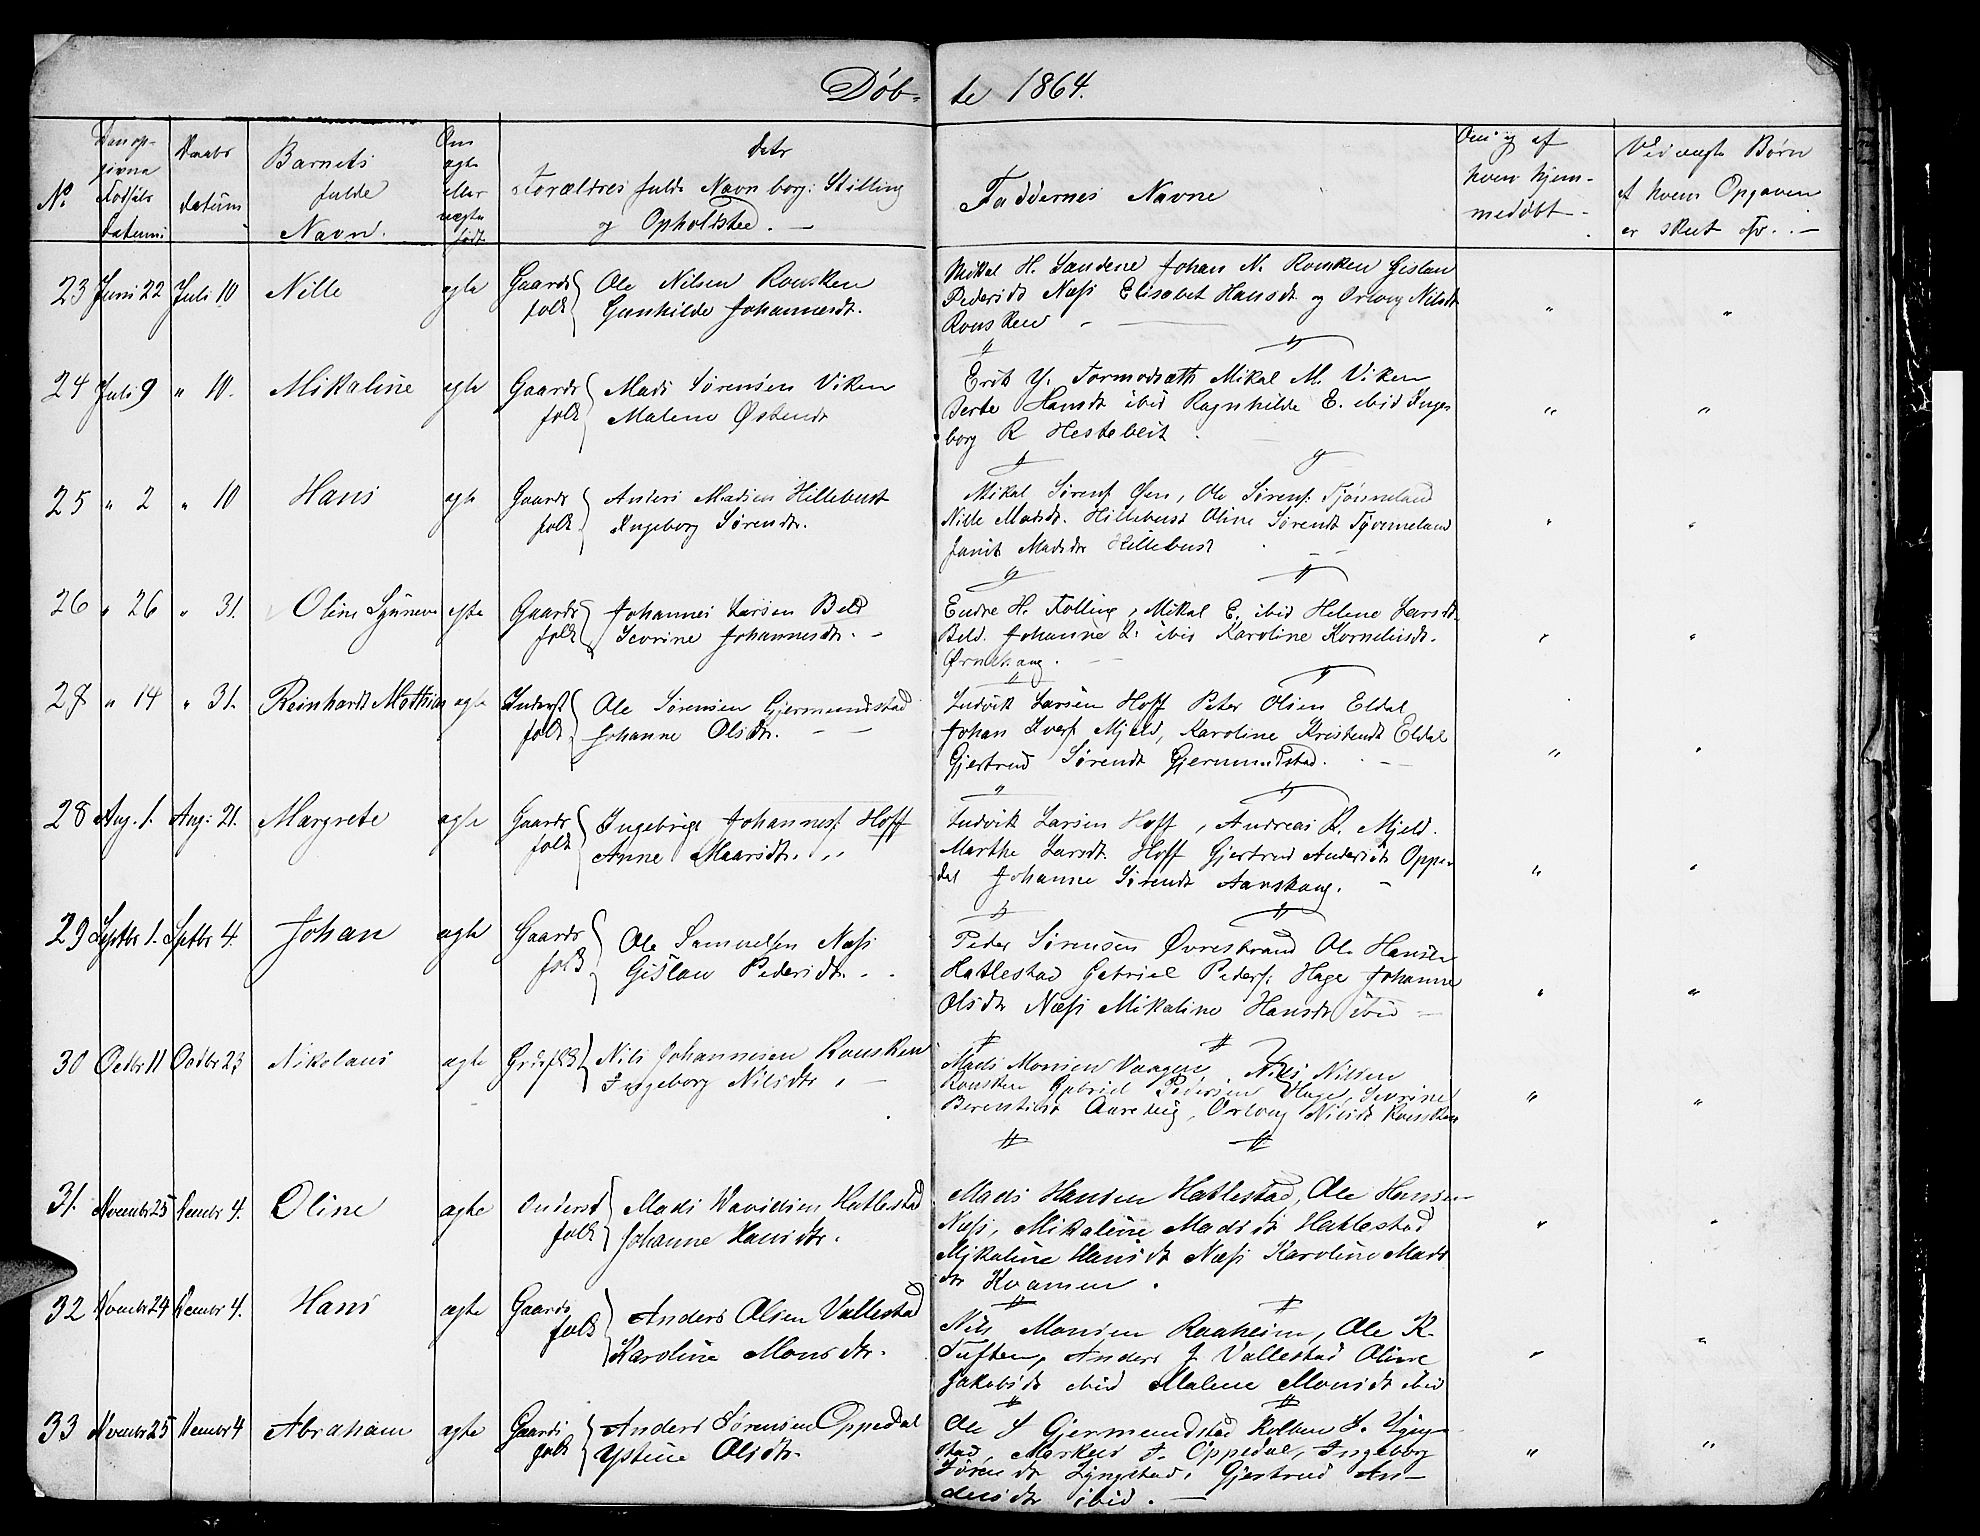 Døb- te 1864.
No
Den op-
givne
Fødsels
datum
Daabs
datum
Barnets
fulde
Navn.
Om
ægte
eller
uægte
født
deto
Forældres fulde Navn borg: Stilling
og Opholdsted. —
Faddernes Navne
Om og af
hvem hjem-
medøbt -
Ved uægte Børn
af hvem Opgaven
er skeet
23 Juni 22 Juli 10 Nille ægte Gaards folk Ole Nilsen Rousken
Gunhilde Johannesdt.
Mikal H. Sandene Johan N. Rousken Gislau
Pedersdt Næss Elisabet Hansdt og Orloug Nilsdt
Rousken - " "
24 Juli 9 " 10. Mikaline ægte Gaards folk Mads Sørensen Viken
Malene Østensdt
Erik Y. Tormodsæth Mikal M. Viken
Berte Hansdt ibid Ragnhilde E. ibid Inge-
borg R Hestebeit " "
25 " 2 " 10 Hans ægte Gaards folk Anders Madsen Hillebust
Ingeborg Sørendtr.
Mikal Sørens. Øen, Ole Sørens. Tjønneland
Nille Madsdt. Hillebust Oline Sørendt Tjønneland
Madsdtr Hillebust " "
26 " 26 " 31. Oline Synneve ægte Gaards folk Johannes Larsen Beld
Sevrine Johannesdtr. -
Endre H. Tolling, Mikal E. ibid Helene Larsdt
Beld. Johanne L: ibid Karoline Kornelusdt.
Ørnehaug. " "
28 " 14 " 31. Reinhardt Mathias ægte Inderst folk Ole Sørensen Gjermundstad
Johanne Olsdtr. - -
Ludvik Larsen Hoff Peter Olsen Eldal
Johan Ivers. Mjeld, Karoline Kristendt Eldal
Gjertrud Sørendt Gjermundstad. " "
28 Aug. 1. Aug: 21. Margrete ægte Gaards folk Ingebrigt Johanness. Hoff
Anne
Ludvik Larsen Hoff, Andreas R. Mjeld.
Marthe Larsdt. Hoff Gjertrud Andersdt Oppe-
dal Johanne Sørendt Aarskoug. " "
29 Septbr 1. Septbr 4. Johan ægte Gaards folk Ole Samuelsen Næss
Gislau Pedersdtr. -
Peder Sørensen Øvrestrand Ole Hansen
Hatlestad Gabriel Peders. Hage Johanne
Olsdt Næss Mikaline Hansdt ibid " "
30 Octbr 11 Octbr 23 Nikolaus ægte Grdsflk Nils Johannesen Rousken
Ingeborg Nilsdtr -
Mads Monsen Vaagene Nils Nilsen
Rousken Gabriel Pedersen Hage, Sevrine
Aareleig, Orloug Nilsdt Rousken " "
31. Novembr 25 Decembr 4. Oline ægte Inderst folk Mads Davidsen Hatlestad
Johanne Hansdtr.
Mads Hansen Hatlestad, Ole Hansen
Næss, Mikaline Madsdt Hatlestad
Mikaline Hansdt Næss Karoline Mads
dtr Kvamen. " "
32 Novembr 24 Decembr 4. Hans ægte Gaards folk Anders Olsen Vallestad
Karoline Monsdtr.
Nils Monsen Raaheim, Ole K.
Tuften, Anders J Vallestad Oline
Jakobsdt ibid Malene Monsdt ibid " "
33 Novembr 25 Decembr 4 Abraham ægte Gaards folk Anders Sørensen Oppedal
Ystine Olsdtr.
Ole S Gjermundstad S. Lyng-
stad Markus S. Oppedal, Ingeborg
Sørensdtr Lyngstad, Gjertrud An-
dersdtr ibid. — " "